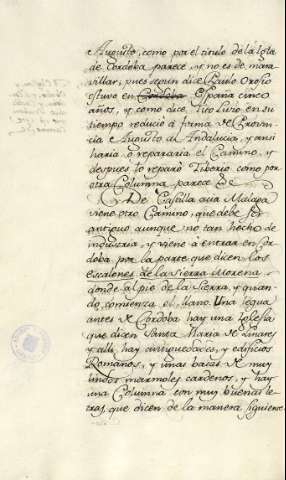 Augusto, como por el titulo de la lota
de Cordoba parece, y no es de mara
villar, pues segun dice Paulo Orosio
estuvo en Cordoba España cinco
años, y como dice Tito Livio en su
tiempo reducio á forma de Provin
cia Augusto la Andalucia, y ansi
haria ó repararia el Camino, y
despues lo reparó Tiberio como por
otra Columna parece
De Castilla aua Malaga
viene otro Camino, que debe ser
antiguo aunque no tan hecho de
industria, y viene á entrar en Cor
doba, por la parte que dicen los
escalones de la Sierra Morena
donde al pie de la Sierra, y quan
do comienza el llano. Una legua
antes de Cordoba hay una Iglesia
que dicen Santa Maria de Linares
y alli hay antiguedades, y edificios
Romanos, y unas basas de muy
lindos marmoles cardenos, y hay
una Columna con muy buenas le
tras, que dicen de la manera siguiente